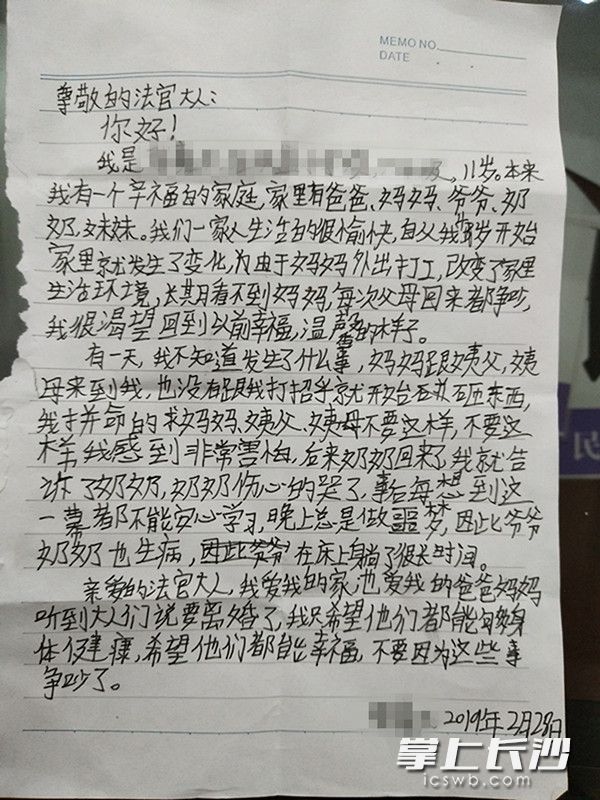 MEMO NO.
DATE
尊敬的法官大人:
你好!
我是 , 及, 11岁。本来
我有一个辛福的家庭,家里有爸爸、妈妈、爷爷、奶
奶,妹妹。我们一家人生活的很愉快,自父我 岁开始
家里就发生了变化,为由于妈妈外出打工,改变了家里
生活环境,长期看不到妈妈,每次父母回来都争吵,
我很渴望回到以前幸福,温馨的样子。
有一天,我不知道发生了什么事,妈妈跟姨父,姨
母来到我,也没有跟我打招乎就开始砸东西,
我拼命的求妈妈、姨父、姨母不要这样,不要这
样,我感到非常害怕,后来奶奶回来了,我就告
诉了奶奶,奶奶伤心的哭了,事后每想到这
一幕都不能安心学习,晚上总是做噩梦,因此爷爷
奶奶也生病,因此爷爷在床上躺了很长时间。
亲爱的法官大人,我爱我的家,也爱我的爸爸妈妈
听到大人们说要离婚了,我只希望他们都能够身
体健康,希望他们都能幸福,不要因为这些事
争吵了。
2019年2月28日
掌上长沙
icswb.com